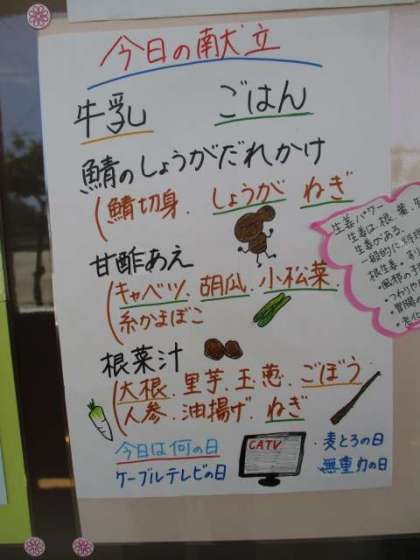 今日の献立
牛乳 ごはん
鯖のしょうがだれかけ
(鯖切身、しょうが ねぎ
甘酢あえ
(キャベツ、胡瓜、小松菜
糸かまぼこ
根菜汁
(大根、里芋、玉葱、ごぼう
人参、油揚げ、ねぎ
今日は何の日
ケーブルテレビの日
CATV
・麦とろの日
・無重力の日
生姜パワー
生姜は、根、葉、
生姜がある。
一般的に
根生姜・
・風邪の
・つわりや
・胃腸
・老化